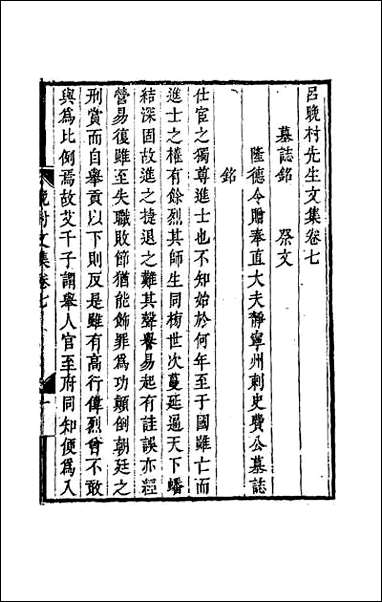 呂晚村先生文集卷七
墓誌銘 祭文
隆德令贈奉直大夫靜寧州刺史費公墓誌
銘
仕宦之獨尊進士也不知始於何年至于國雖亡而
進士之權有餘烈其師生同梅世次蔓延遍天下蟠
結深固故進之捷退之難其聲譽易起有詿誤亦經
營易復雖至失職敗節猶能飾罪爲功顛倒朝廷之
刑賞而自舉貢以下則反是雖有高行偉烈曾不敢
與爲比例焉故艾千子謂舉人官至府同知便爲入
晚村文集卷七
一